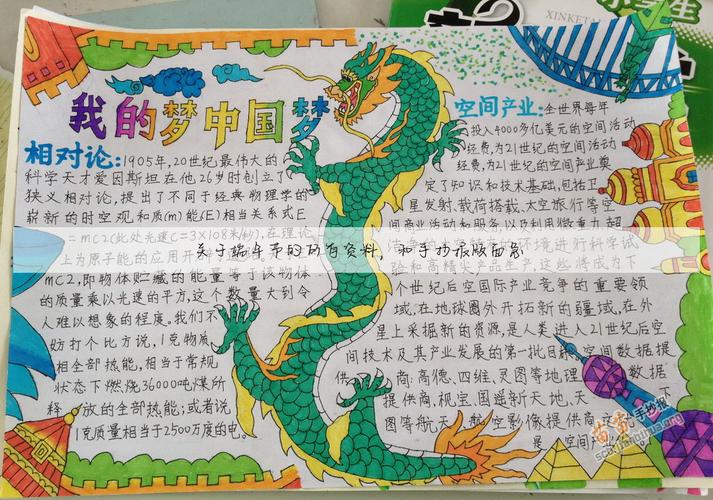 我的梦中国梦
相对论:1905年,20世纪最伟大的
科学天才爱因斯坦在他26岁时创立了
狭义相对论,提出了不同于经典物理学的
崭新的时空观和质(m)能(E)相当关系式E
=mC2(此处光速C=3×108米/秒),在理论
上为原子能的应用开
MC2,即物体贮藏的能量等于该物体
的质量乘以光速的平方,这个数量大到令
人难以想象的程度。我们不
妨打个比方说,1克物质
相全部热能,相当于常规
状态下燃烧36000吨煤所
释放的全部热能;或者说
1克质量相当于2500万度的电。
空间产业:全世界每年
投入4000多亿美元的空间活动
经费,为21世纪的空间活动
经费,为21世纪的空间产业奠
定了知识和技术基础,包括卫
星发射、载荷搭载、太空旅行等空
间商业活动和服务,以及利用微重力、超
环境进行科学试
验和高精尖产品生产,这些将成为下
个世纪后空国际产业竞争的重要领
域,在地球圈外开拓新的疆域,在外
星上采掘新的资源,是人类进入21世纪后空
间技术及其产业发展的第一批目标,空间数据提
供商:高德、四维、灵图等地理
提供商,视宝、国遥新天地、天
图等航天、航空影像提供商
是 空间
关于端午节的所有资料,和手抄报版面图
XINKETA
小学生
手抄报